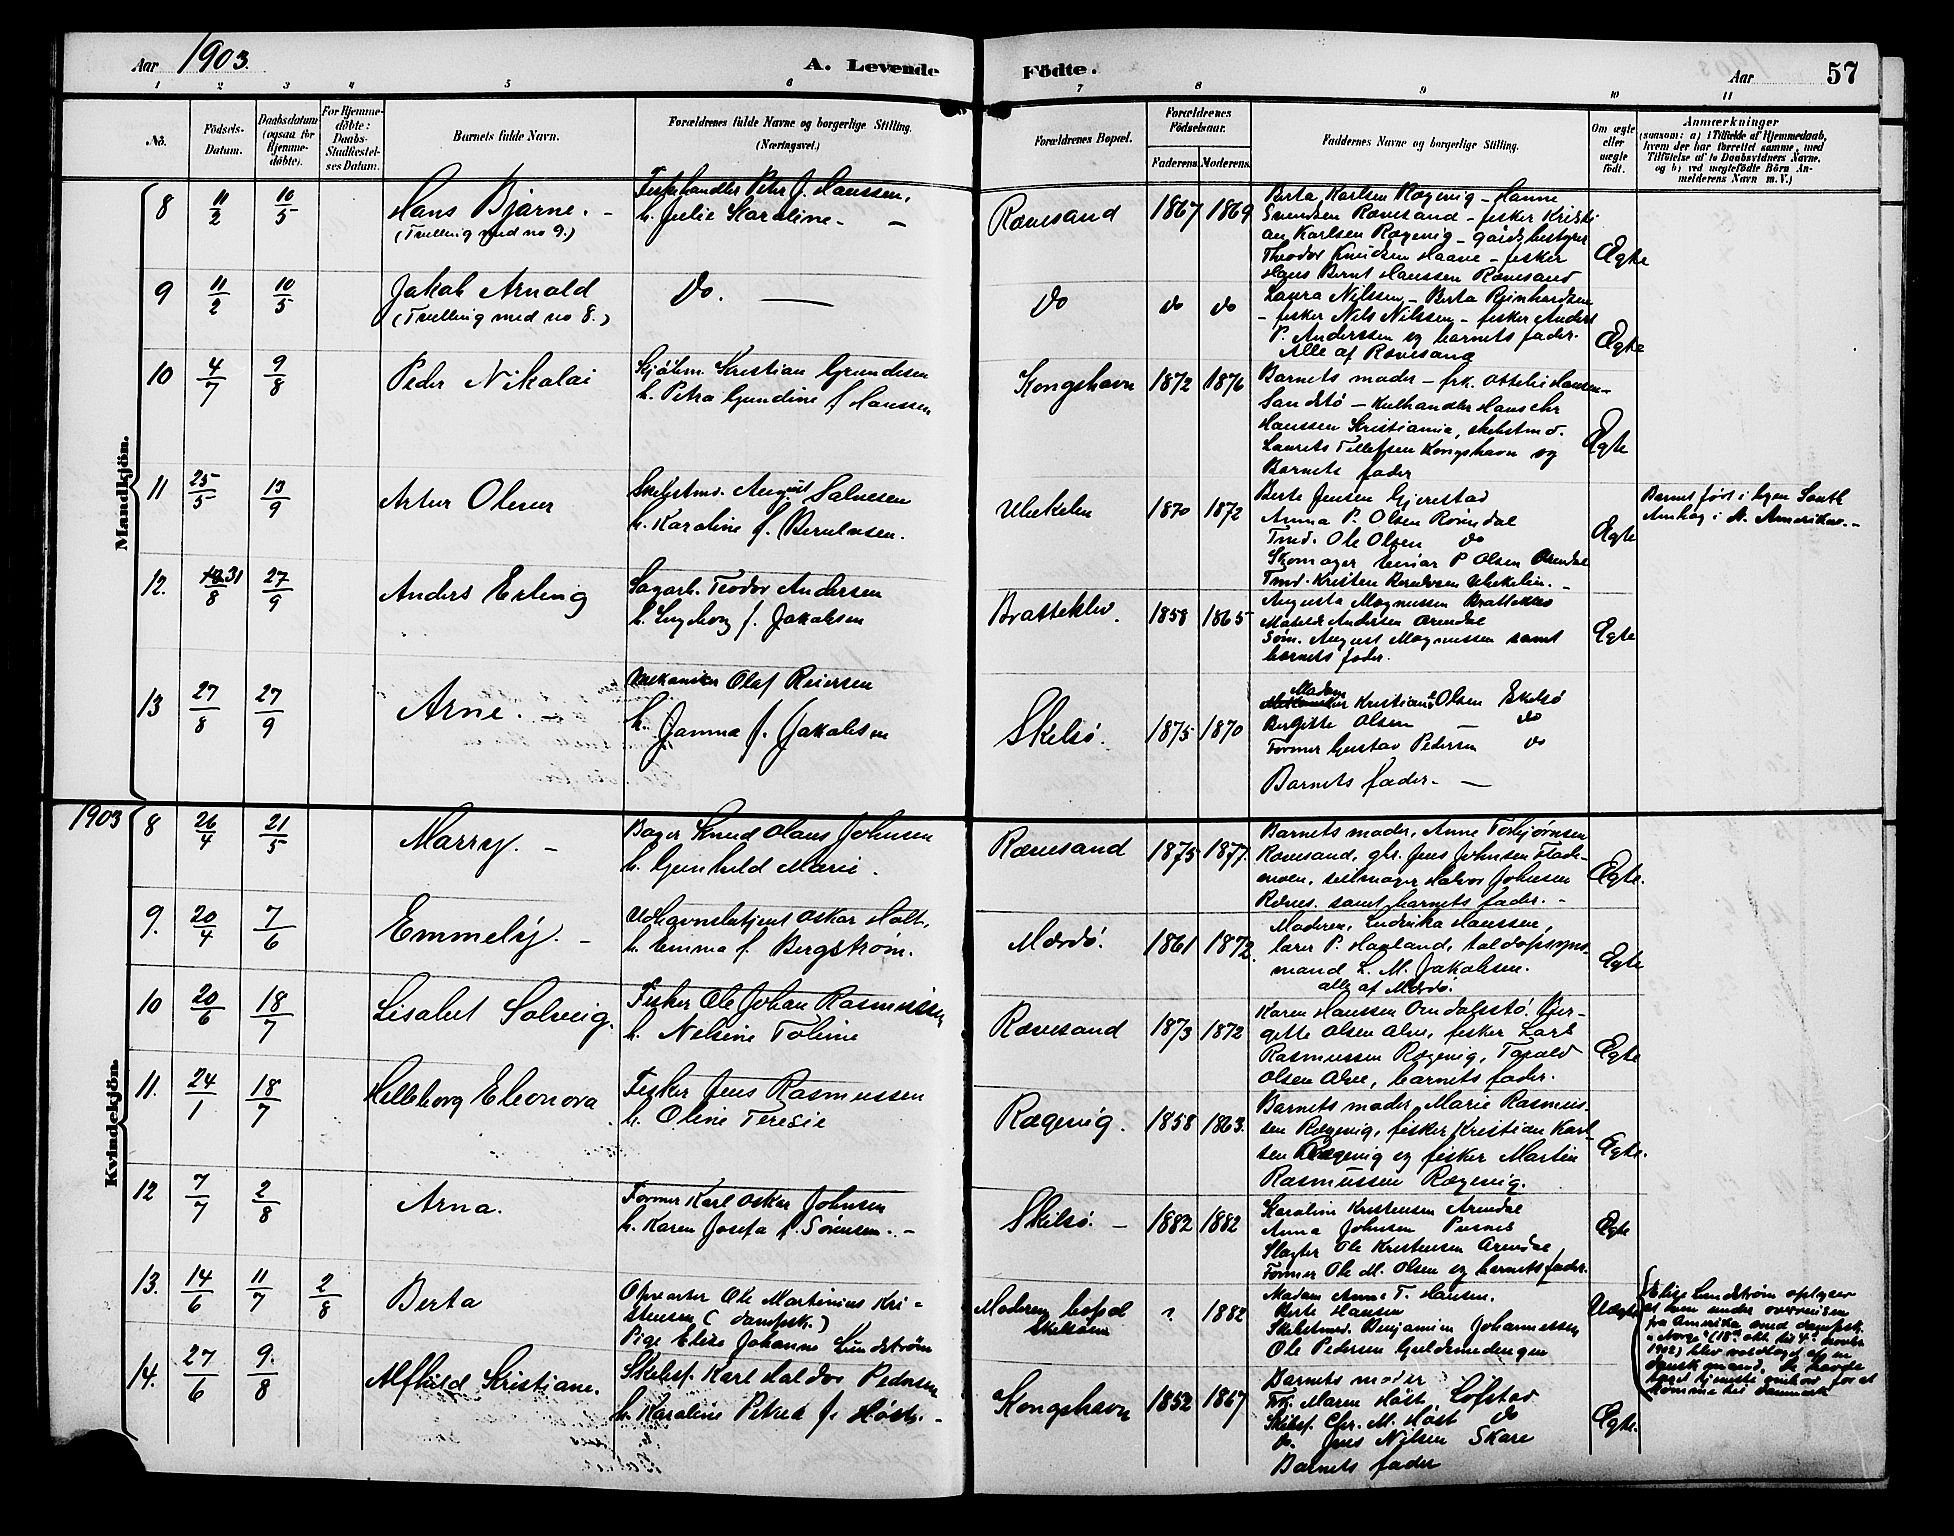 Aar 1903.
A. Levende
Födte.
Aar
57
1 2 3 4 5 6 7 8 9 10 11
No.
Födsels-
Datum.
Daabsdatum
(ogsaa for
Hjemme-
döbte).
For Hjemme-
döbte:
Daabs-
Stadfæstel-
ses Datum.
Barnets fulde Navn.
Forældrenes fulde Navne og borgerlige Stilling.
(Næringsvei.)
Forældrenes Bopæl.
Forældrenes
Födselsaar.
Faderens. Moderens.
Faddernes Navne og borgerlige Stilling.
Om ægte
eller
uægte
födt.
Anmærkninger
(saasom: a) i Tilfælde af Hjemmedaab,
hvem der har forrettet samme, med
Tilföielse af to Daabsvidners Navne,
og b) ved uægtefödte Börn An-
melderens Navn m. V.)
Mandkjön.
8 11/2 10/5 Hans Bjarne. -
(Tvilling med no 9.)
Fiskehandler Peter J. Hanssen,
h. Julie Karoline - -
Rævesand 1867 1869
Berta Karlsen Rægevig - Hanne
Gundsen Rævesand - fisker Kristi-
an Karlsen Rægevig - gårdsbestyrer
Theodor Knudsen Haave - fisker
Hans Bernt Hanssen Rævesand
Ægte
9 11/2 10/5 Jakob Arnold
(Tvilling med no 8.)
Do. —
Do do do
Laura Nilssen - Berta Reinhardsen
- fisker Nils Nilssen - fisker Anders
P. Anderssen og barnets fader.
Alle af Rævesand
Ægte
10 4/7 9/8 Peder Nikolai
Sjøfm. Kristian Gundesen
h. Petra Gundine f Hanssen
Kongshavn 1872 1876
Barnets moder - frk. Ottilie Hansen -
Sandstø - Kulhandler Hans Chr
Hanssen Kristiania, skibstmd.
Laurits Tellefsen Kongshavn og
Barnets fader
Ægte
11 25/5 13/9 Artur Oliver
Skibstmd. August Salvesen
h. Karoline f. Berntsen.
Ubekilen 1870 1872
Berte Jensen Gjerestad
Anna P. Olsen Rømdal
Tmd. Ole Olsen do
Skomager Einar P Olsen Arendal
Tmd. Kristen Berntsen Ubekilen. -
Ægte
Barnet født i byen South
Amboy i N. Amerika. -
12. 31/8 27/9 Anders Erling
Sagarb. Teodor Andersen
h. Ingeborg f. Jakobsen
Bratteklev. 1858 1865
Augusta Magnussen Bratteklev
Matilde Andersen Arendal
Søm. August Magnussen samt
barnets fader.
Ægte
13 27/8 27/9 Arne. -
Mekaniker Olaf Reiersen
h. Jamma f. Jakobsen
Skilsø. 1875 1870
Madam Kristiane Olsen Skilsø
Bergitte Olsen — do
Former Gustav Pedersen do
Barnets fader - —
1903
Kvindekjön.
8 26/4 21/5 Marry. -
Bager Knud Olaus Johnsen
h. Gunhild Marie.
Rævesand 1875 1877.
Barnets moder, Anne Torbjørnsen
Rævesand, gbr. Jens Johnsen Flade-
moen, seilmager Halvor Johnsen
Ræves. samt barnets fader. -
Ægte.
9. 20/4 7/6 Emmely. -
Udhavnsbetjent Oskar Holt,
h. Emma f. Bergstrøm.
Mærdø. 1861 1872.
Moderen, Ludvika Hanssen,
lærer P. Haaland, toldopsyns-
mand L. M. Jakobsen.
alle af Mærdø.
Ægte
10 20/6 18/7 Lisabet Solveig.
Fisker Ole Johan Rasmussen
h. Nelsine Toline
Rævesand 1873 1872
Karen Hanssen Omdalsstø, Ber-
gette Olsen Alve, fisker Lars
Rasmussen Rægevig, Tarald
Olsen Alve, barnets fader.
Ægte
11. 24/1 18/7 Helleborg Eleonora
Fisker Jens Rasmussen
h. Oline Teresie
Rægevig. 1858 1863.
Barnets moder, Marie Rasmus-
sen Rægevig, fisker Kristian Karl-
sen Rægevig og fisker Martin
Rasmussen Rægevig.
Ægte.
12 7/7 2/8 Arna.
Former Karl Oskar Johnsen
h. Karen Josefa f. Sørensen. -
Skilsø. - 1882 1882
Karoline Kristensen Arendal
Anna Johnsen Pusnes
Slagter Ole Kristensen Arendal
Former Ole M. Olsen og barnets fader.
Ægte
13. 14/6 11/7 2/8 Berta
Opvarter Ole Martinius Kri-
stensen (dampsk.)
Pige Elise Johanne Lundstrøm
Moderens bopæl
Skilsøen
? 1882
Madam Anne T. Hansen.
Berte Hansen
Skibstmd. Benjamin Johannessen
Ole Pedersen Guldsmedengen
Uægte
Elise Lundstrøm oplyser
at hun under overreisen
fra Amerika med dampsk.
"Norge" (18de okt. til 4de novbr
1902) blev voldtaget af en
dansk mand, der havde
taget tjeneste ombord for at
komme til Danmark
14. 27/6 9./8 Alfhild Kristiane.
Skibsf. Karl Haldor Pedersen
h. Karoline Petrea f. Høst. -
Kongshavn 1852 1867
Barnets moder
Frk. Maren Høst, Lofstad
Skibsf. Chr. M. Høst do
do. Jens Nilsen Skare
Barnets fader
Ægte.